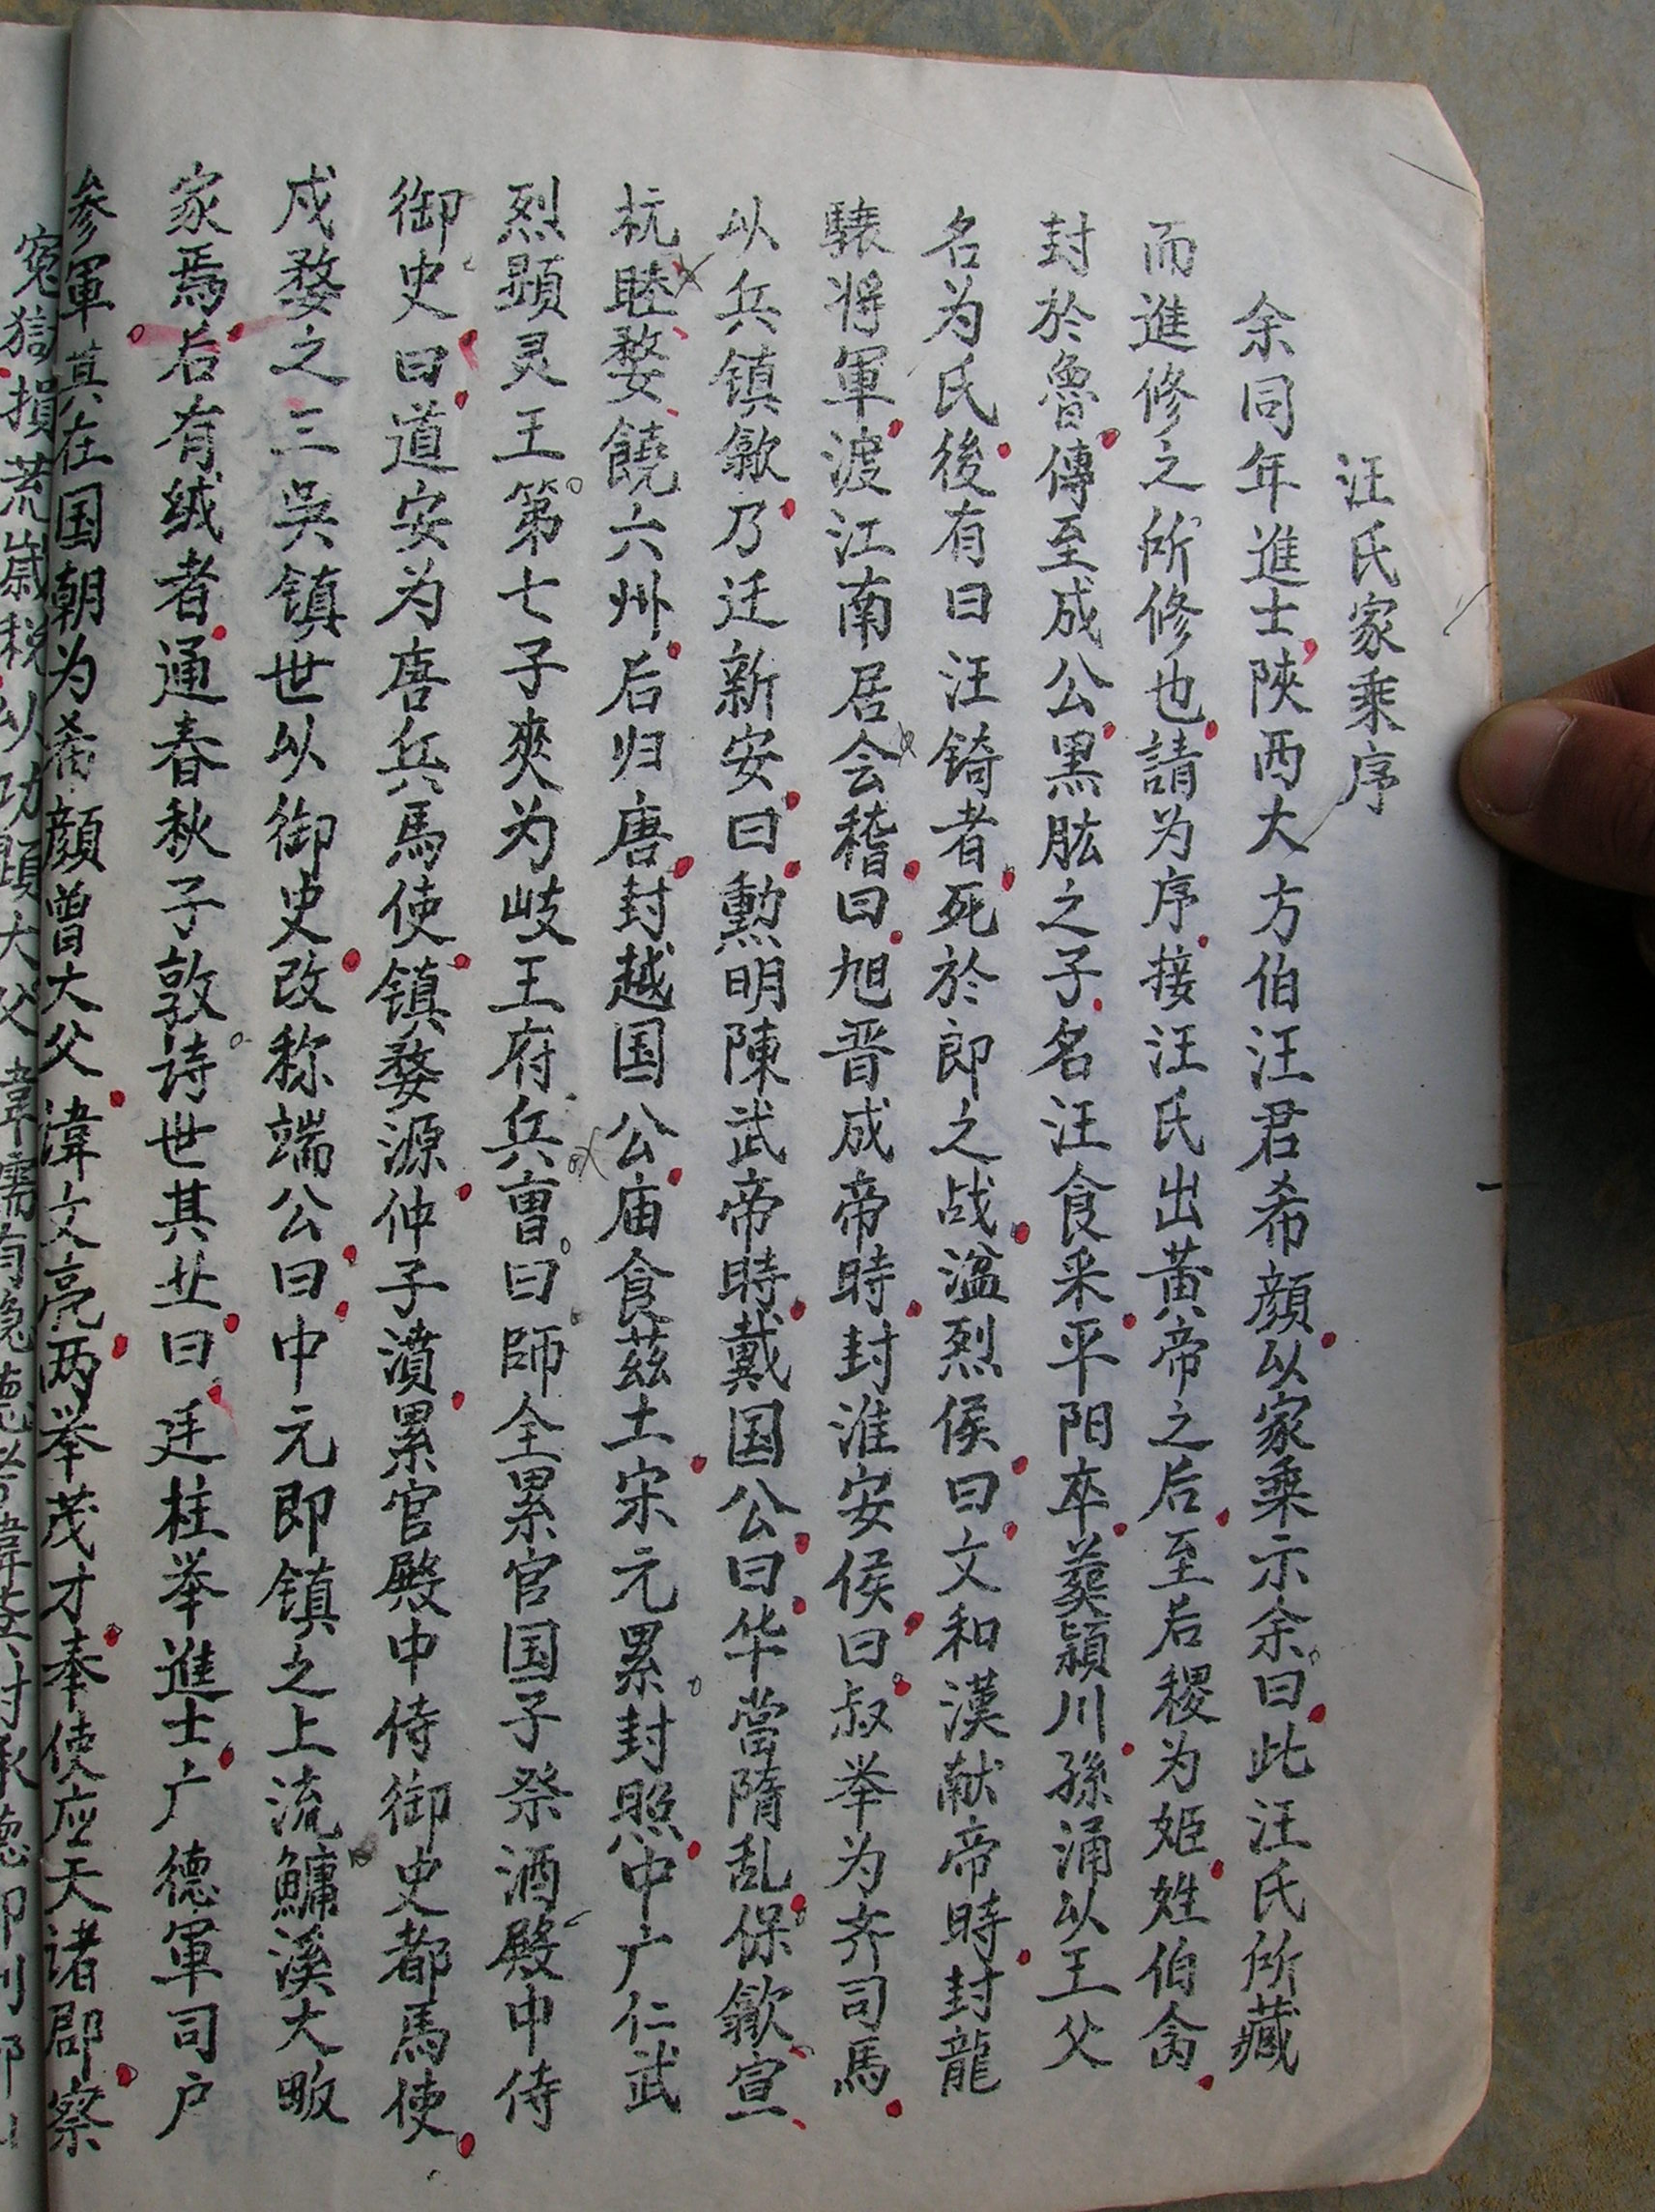 汪氏家乘序
余同年進士陝西大方伯汪君希顔以家乘示余曰此汪氏所藏
而進修之所修也請为序接汪氏出黃帝之后至后稷为姬姓伯禽
封於魯傳至成公黑肱之子名汪食采平阳卒葬潁川孫涌以王父
名为氏後有曰汪錡者死於郎之战謚烈侯曰文和漢献帝時封龍
驤将軍渡江南居会稽曰旭晋成帝時封淮安侯曰叔举为齐司馬
以兵镇歙乃迁新安曰勲明陳武帝時戴国公曰华當隋乱保歙宣
杭睦婺饒六州后归唐封越国公庙食茲土宋元累封照中广仁武
烈顕灵王第七子爽为岐王府兵曺曰師全累官国子祭酒殿中侍
御史曰道安为唐兵馬使镇婺源仲子濆累官殿中侍御史都馬使
戍婺之三吳镇世以御史改称端公曰中元即镇之上流鱅溪大畈
家焉后有绒者通春秋子敦诗世其业曰廷柱举進士广德軍司户
参軍其在国朝为希顔曾大父諱文亮两举茂才奉使应天诸郡察
冤獄損荒歲税以功顕大父諱